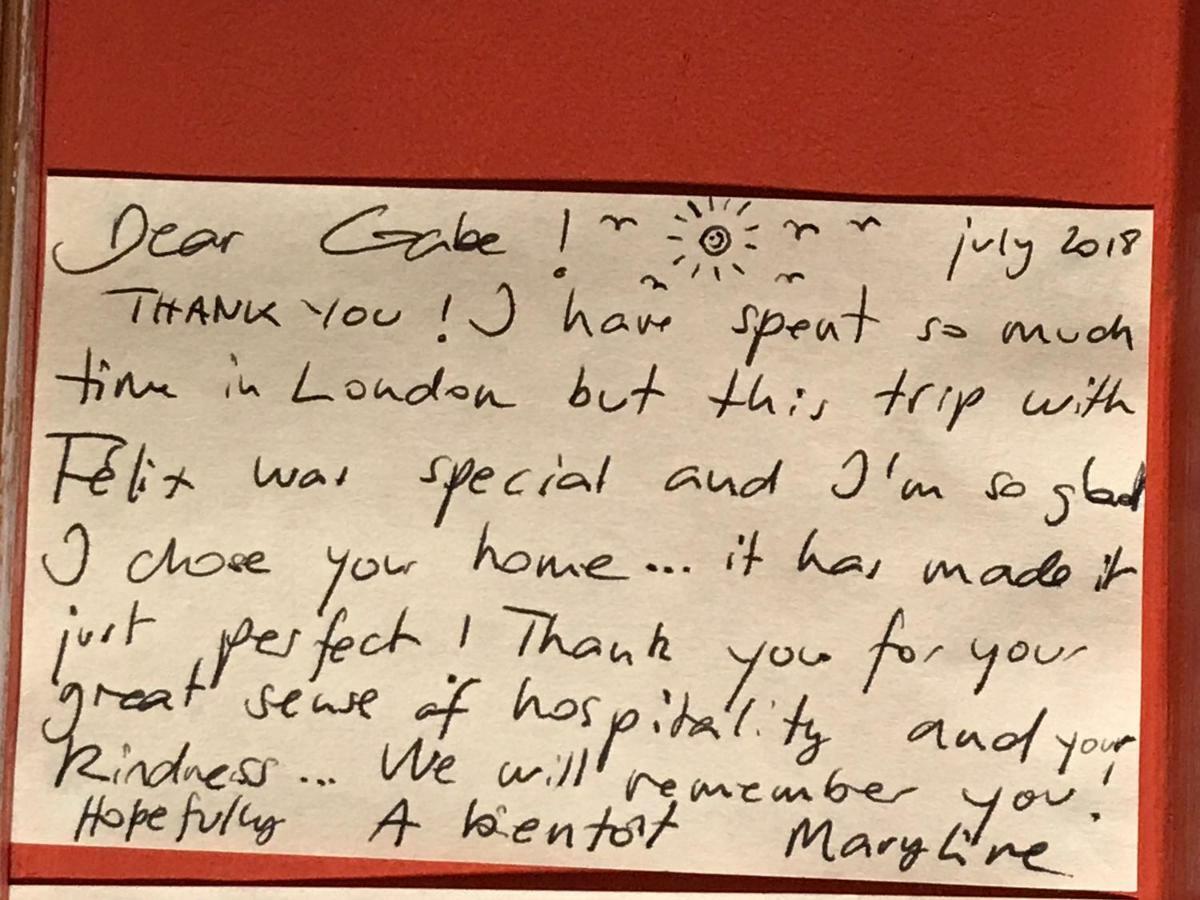 Dear Gabe ! july 2018
THANK YOU ! I have spent so much
time in London but this trip with
Félix was special and I'm so glad
I chose your home ... it has made it
just perfect ! Thank you for your
great sense of hospitality and your
Kindness ... We will remember you !
Hopefully A bientôt Maryline